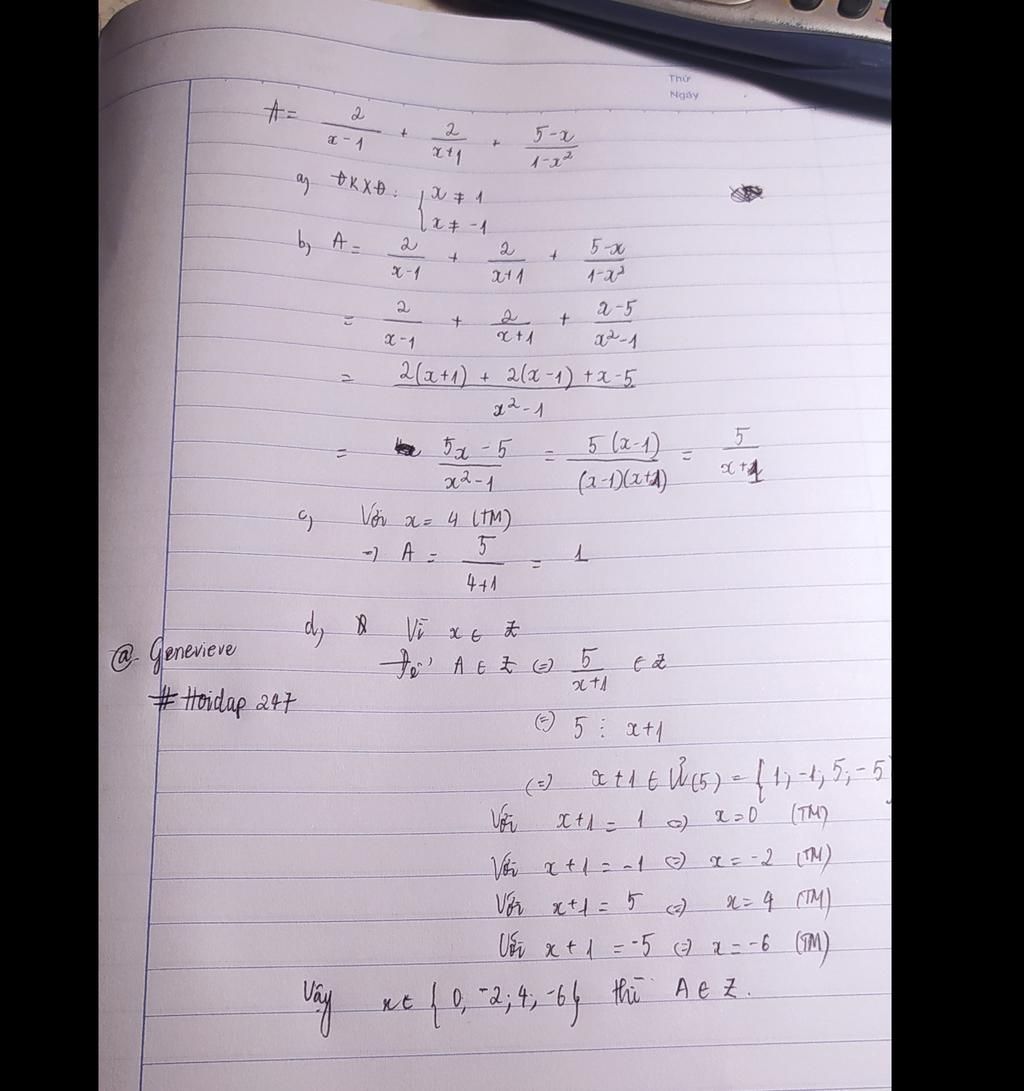 Thứ
Ngày
A = 2/(x-1) + 2/(x+1) + (5-x)/(1-x²)
a) ĐKXĐ: { x ≠ 1
x ≠ -1
b) A = 2/(x-1) + 2/(x+1) + (5-x)/(1-x²)
= 2/(x-1) + 2/(x+1) + (x-5)/(x²-1)
= (2(x+1) + 2(x-1) + x-5)/(x²-1)
= (5x-5)/(x²-1) = 5(x-1)/((x-1)(x+1)) = 5/(x+1)
c) Với x = 4 (TM)
=> A = 5/(4+1) = 1
d) Vì x ∈ Z
Để A ∈ Z <=> 5/(x+1) ∈ Z
@ Genevieve
# Hoidap 247
<=> 5 ⋮ x+1
<=> x+1 ∈ Ư(5) = {1; -1; 5; -5
Với x+1 = 1 <=> x=0 (TM)
Với x+1 = -1 <=> x = -2 (TM)
Với x+1 = 5 <=> x = 4 (TM)
Với x+1 = -5 <=> x = -6 (TM)
Vậy x ∈ {0; -2; 4; -6} thì A ∈ Z.